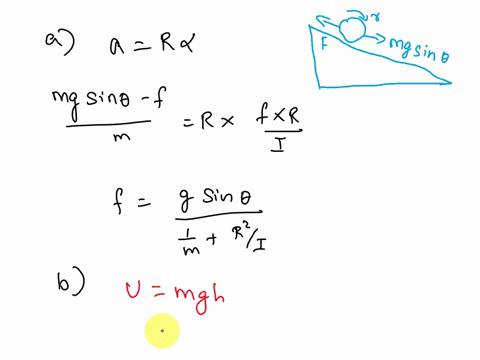 a) a = Rα
(mg sinθ - f)/m = R × (f×R)/I
f = (g sinθ)/(1/m + R²/I)
b) U = mgh
r
F
mg sinθ